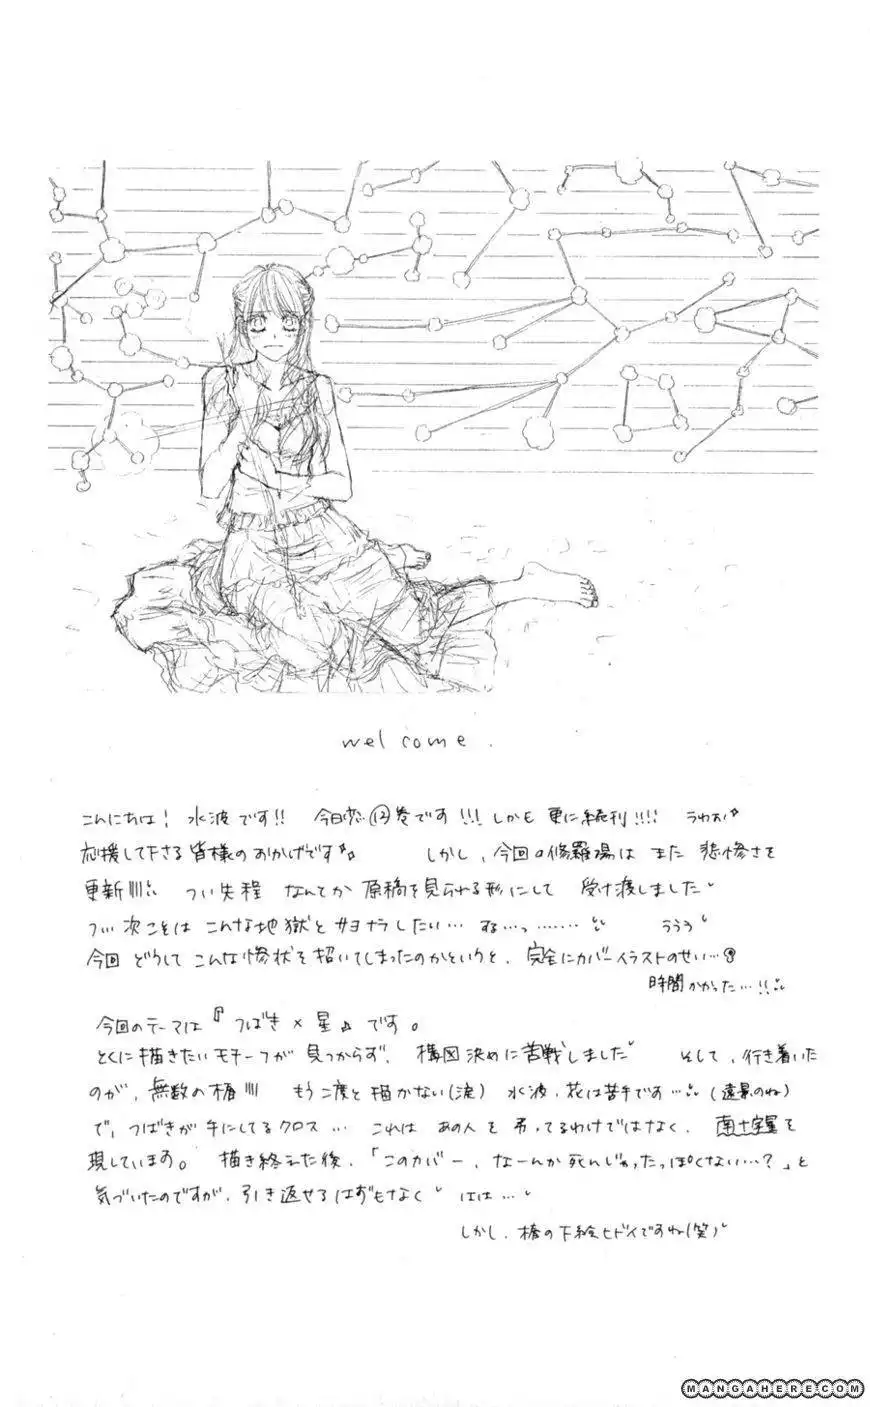 welcome.
こんにちは! 水波です!! 今日恋⑫巻です!!! しかも 更に続刊!!!! うわぉ
応援して下さる皆様のおかげです しかし、今回の修羅場は また 悲惨さを
更新!!!! つい先程 なんとか 原稿を見られる形にして 受け渡しました
次こそは こんな地獄と サヨナラしたい… ううう
今回 どうして こんな惨状を招いてしまったのかというと、完全にカバーイラストのせい…
時間かかった…!!
今回のテーマは『つばき×星』です。
とくに描きたいモチーフが 見つからず、構図決めに苦戦しました そして、行き着いた
のが、無数の椿!!! もう二度と描かない(涙) 水波、花は苦手です… (遠景のね)
で、つばきが手にしてるクロス… これは あの人を 弔ってるわけではなく、南十字星を
現しています。 描き終えた後、「このカバー、なーんか死んじゃったっぽくない…?」と
気づいたのですが、引き返せるはずもなく はは…
しかし、椿の下絵ヒドイですね(笑)
MANGAHERE.COM